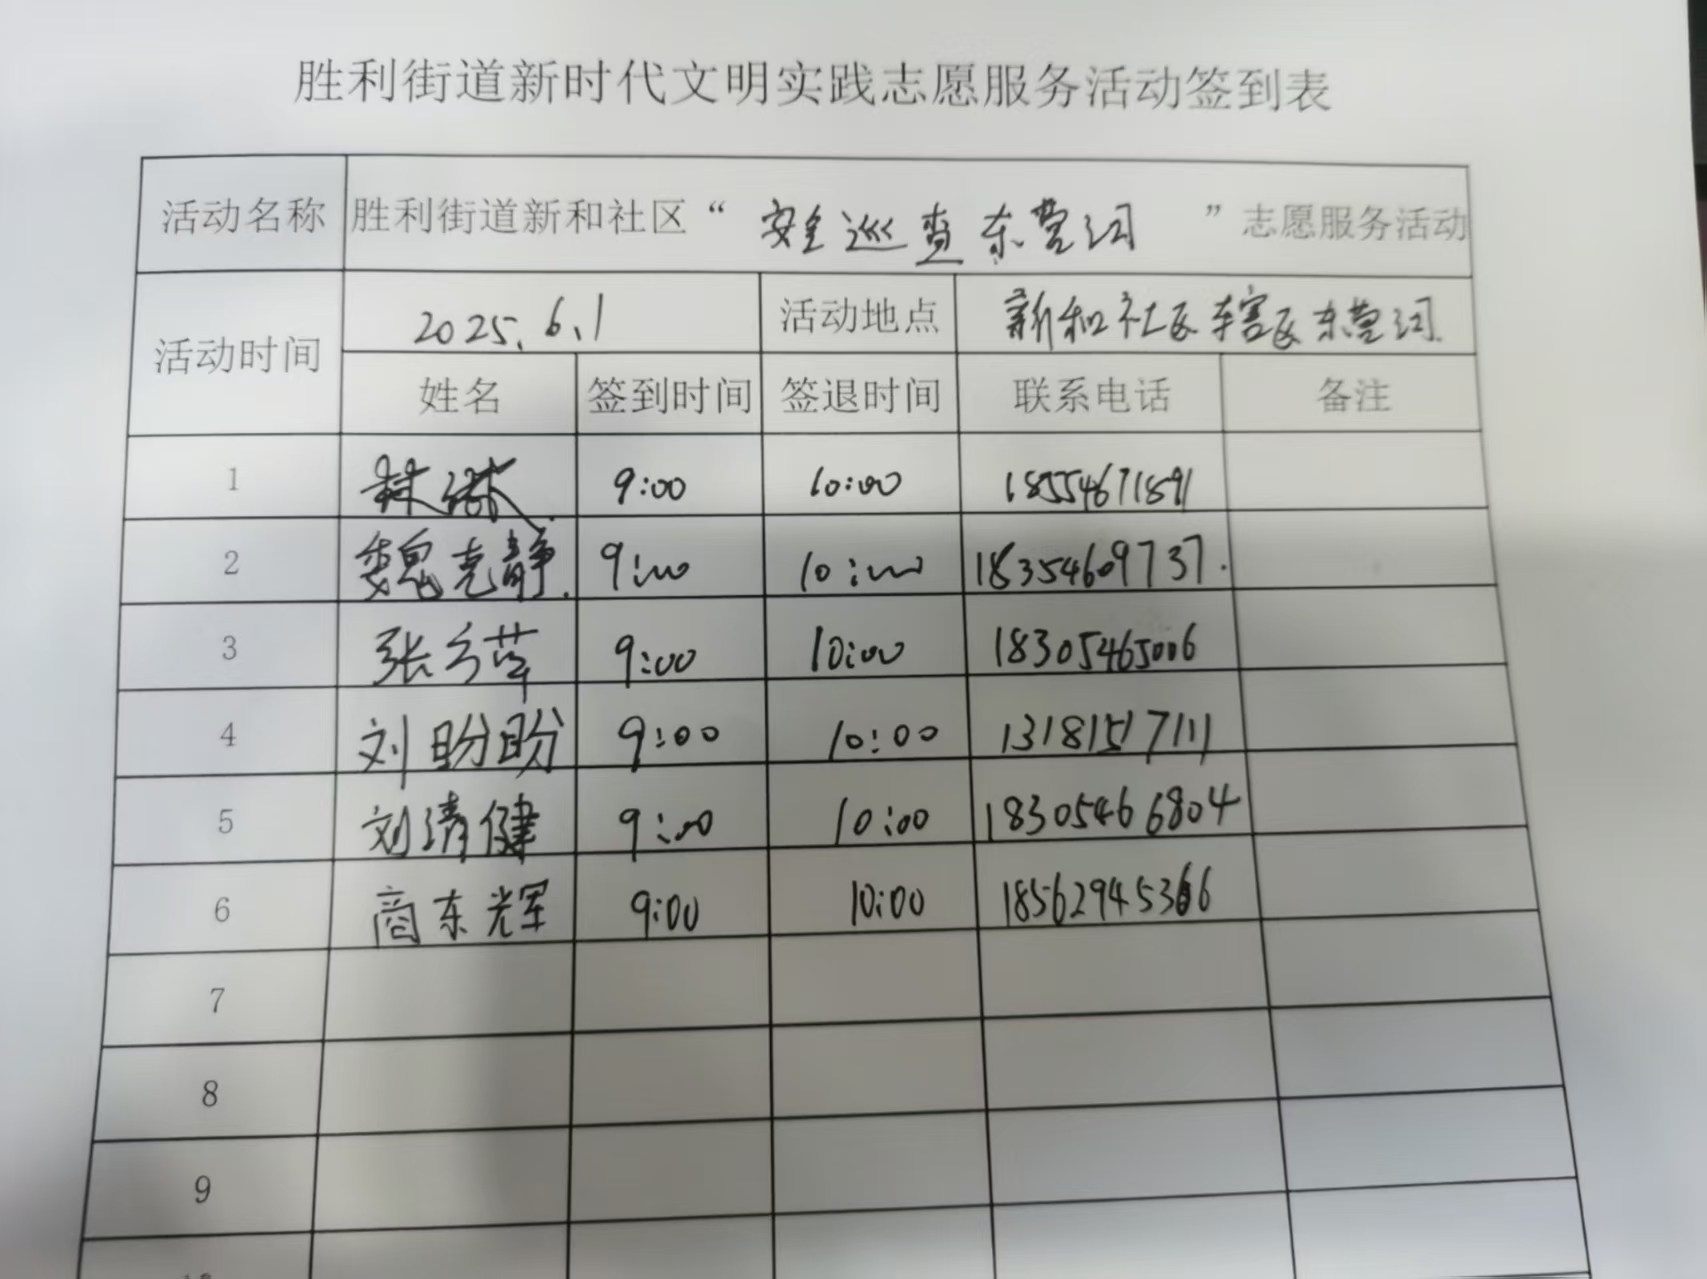 胜利街道新时代文明实践志愿服务活动签到表
活动名称 胜利街道新和社区“ 安全巡查东营河 ”志愿服务活动
活动时间 2025.6.1 活动地点 新和社区辖区东营河
姓名 签到时间 签退时间 联系电话 备注
1 林 9:00 10:00 18554671891
2 魏克静 9:00 10:00 18354609737.
3 张 萍 9:00 10:00 18305465006
4 刘盼盼 9:00 10:00 13181517111
5 刘清健 9:00 10:00 18305466804
6 商东辉 9:00 10:00 18562945366
7
8
9